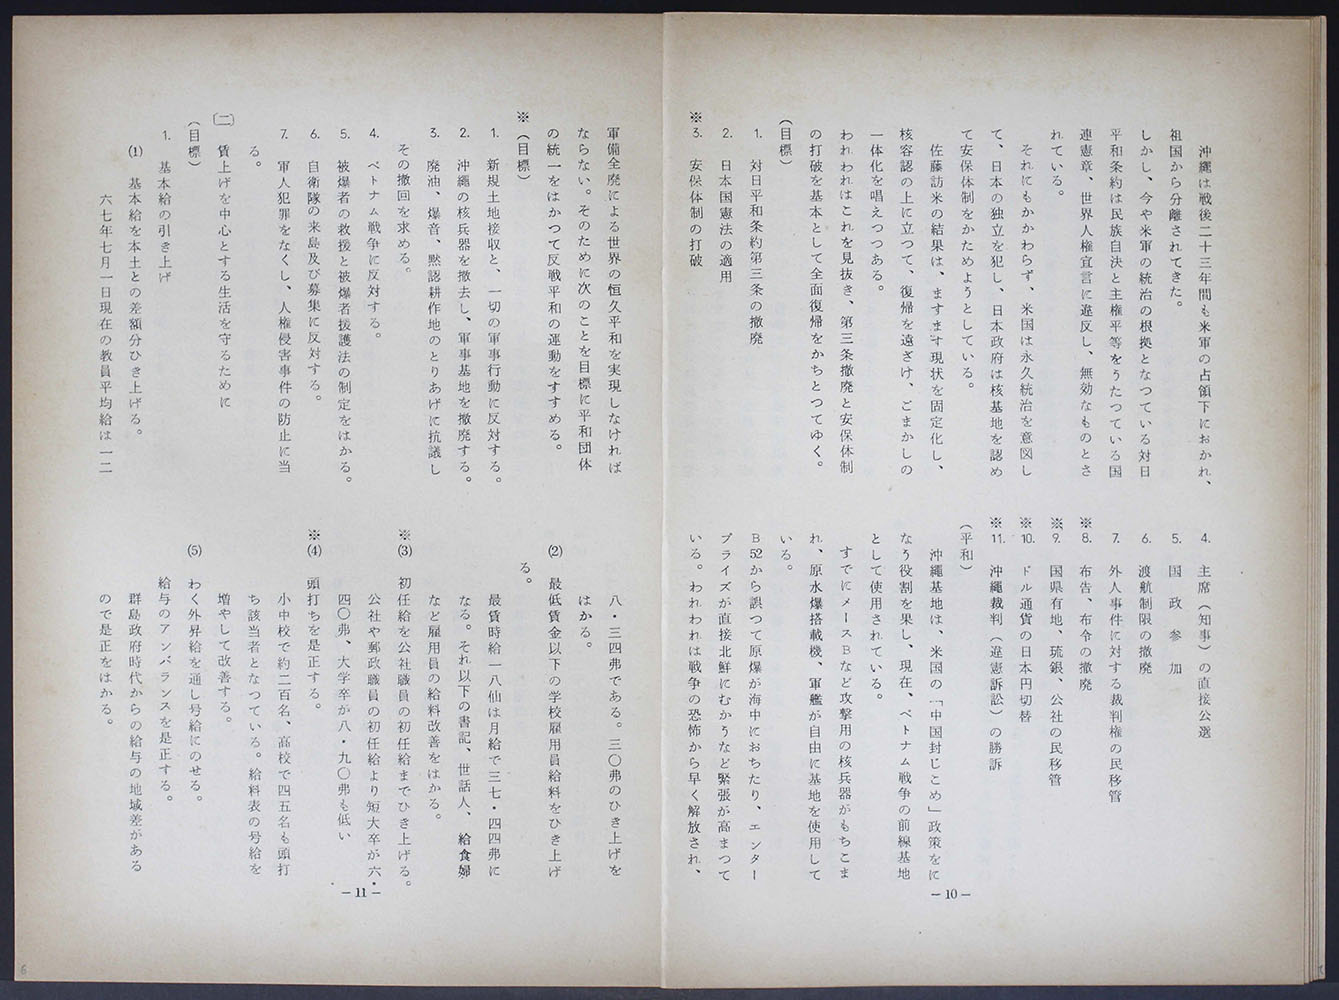 沖縄は戦後二十三年間も米軍の占領下におかれ、
祖国から分離されてきた。
しかし、今や米軍の統治の根拠となつている対日
平和条約は民族自決と主権平等をうたつている国
連憲章、世界人権宣言に違反し、無効なものとさ
れている。
それにもかかわらず、米国は永久統治を意図し
て、日本の独立を犯し、日本政府は核基地を認め
て安保体制をかためようとしている。
佐藤訪米の結果は、ますます現状を固定化し、
核容認の上に立つて、復帰を遠ざけ、ごまかしの
一体化を唱えつつある。
われわれはこれを見抜き、第三条撤廃と安保体制
の打破を基本として全面復帰をかちとつてゆく。
(目標)
1. 対日平和条約第三条の撤廃
2. 日本国憲法の適用
※3. 安保体制の打破
4. 主席(知事)の直接公選
5. 国政参加
6. 渡航制限の撤廃
7. 外人事件に対する裁判権の民移管
※8. 布告、布令の撤廃
※9. 国県有地、琉銀、公社の民移管
※10. ドル通貨の日本円切替
※11. 沖縄裁判(違憲訴訟)の勝訴
(平和)
沖縄基地は、米国の「中国封じこめ」政策をに
なう役割を果し、現在、ベトナム戦争の前線基地
として使用されている。
すでにメースBなど攻撃用の核兵器がもちこま
れ、原水爆搭載機、軍艦が自由に基地を使用して
いる。
B52から誤つて原爆が海中におちたり、エンター
プライズが直接北鮮にむかうなど緊張が高まつて
いる。われわれは戦争の恐怖から早く解放され、
—10—
軍備全廃による世界の恒久平和を実現しなければ
ならない。そのために次のことを目標に平和団体
の統一をはかつて反戦平和の運動をすすめる。
※(目標)
1. 新規土地接収と、一切の軍事行動に反対する。
2. 沖縄の核兵器を撤去し、軍事基地を撤廃する。
3. 廃油、爆音、黙認耕作地のとりあげに抗議し
その撤回を求める。
4. ベトナム戦争に反対する。
5. 被爆者の救援と被爆者援護法の制定をはかる。
6. 自衛隊の来島及び募集に反対する。
7. 軍人犯罪をなくし、人権侵害事件の防止に当
る。
(二) 賃上げを中心とする生活を守るために
(目標)
1. 基本給の引き上げ
(1) 基本給を本土との差額分ひき上げる。
六七年七月一日現在の教員平均給は一二
八・三四弗である。三〇弗のひき上げを
はかる。
(2) 最低賃金以下の学校雇用員給料をひき上げ
る。
最賃時給一八仙は月給で三七・四四弗に
なる。それ以下の書記、世話人、給食婦
など雇用員の給料改善をはかる。
※(3) 初任給を公社職員の初任給までひき上げる。
公社や郵政職員の初任給より短大卒が六・
四〇弗、大学卒が八・九〇弗も低い
※(4) 頭打ちを是正する。
小中校で約二百名、高校で四五名も頭打
ち該当者となつている。給料表の号給を
増やして改善する。
(5) わく外昇給を通し号給にのせる。
給与のアンバランスを是正する。
群島政府時代からの給与の地域差がある
ので是正をはかる。
—11—